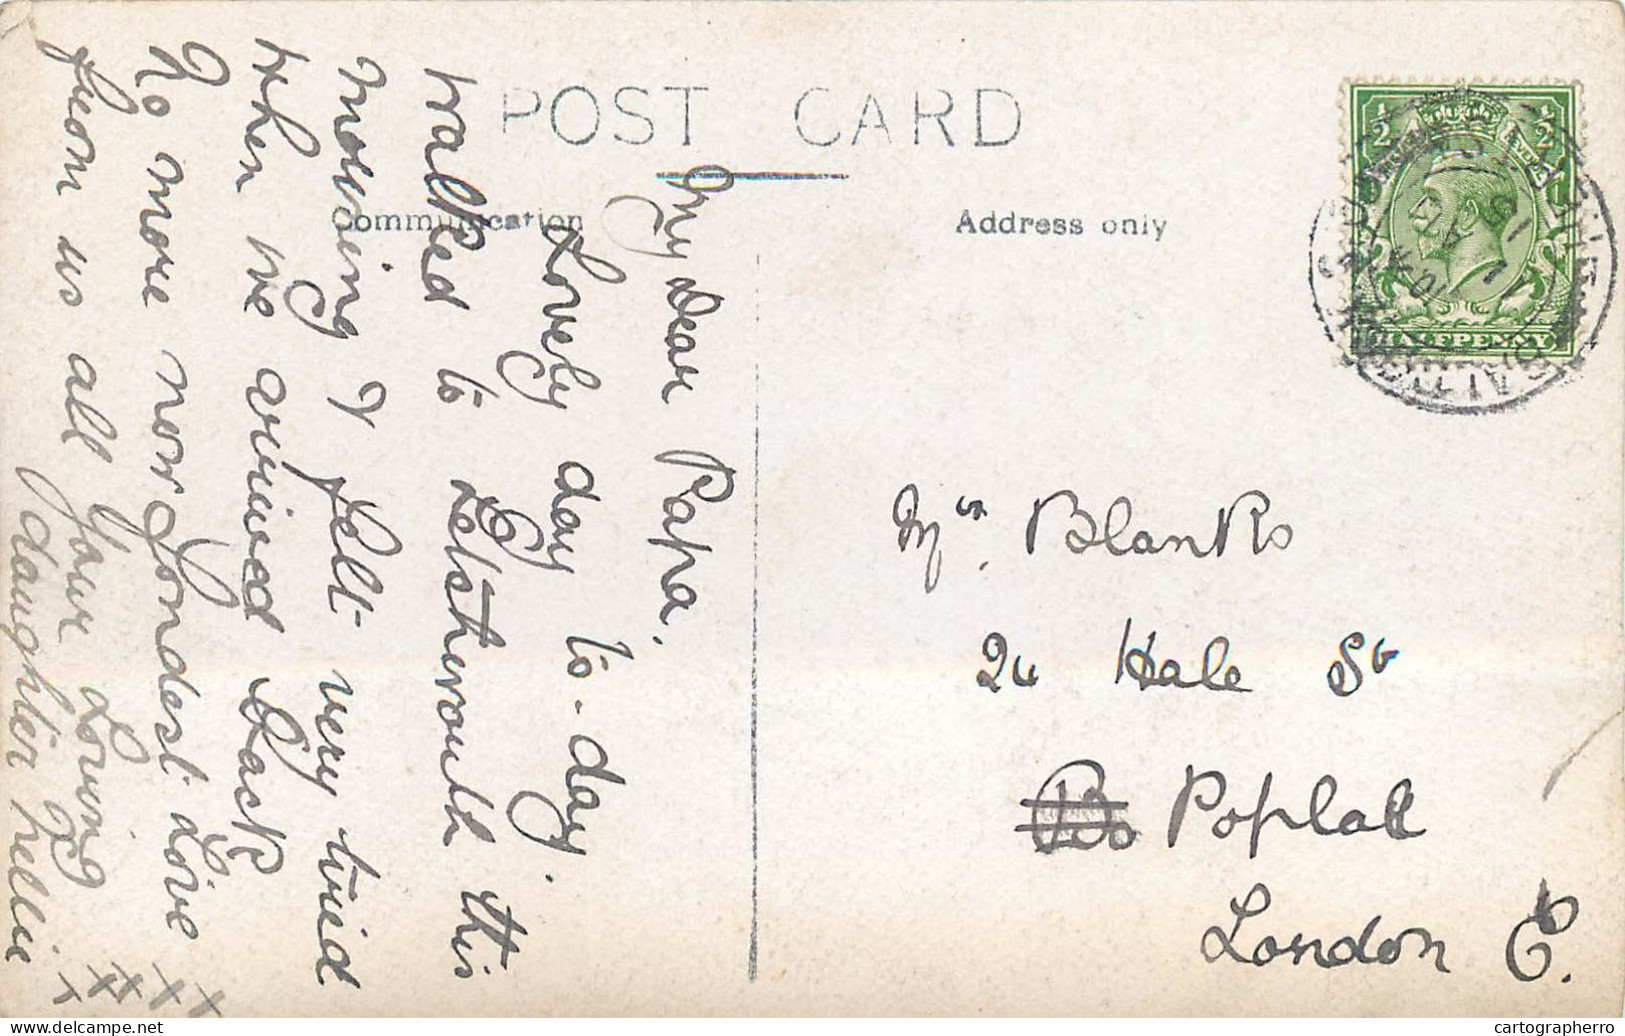 POST CARD
Communication
Address only
My Dear Papa,
Lovely day to-day.
walked to Letstherouth this
morning & felt very tired
when we arrived back
No more now Fondest Love
from us all Your Loving
daughter Nellie
x x x x x
HALFPENNY
Mrs. Blanks
24 Hale St
Poplar
London E.
cartographerro